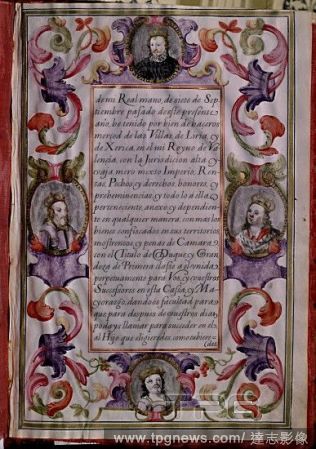 de mi Real mano, de siete de Sep-
tiembre pasado de este presente
año, he tenido por bien de haceros
merced de las Villas de Liria, y
de Xerica, en el mi Reyno de Va-
lencia, con la Jurisdicion alta y
vaja mero mixto Imperio, Ren-
tas, Pechos, y derechos, honores, y
prehеminencias, y todo lo a ella
perteneciente, anexo, y dependien-
te en qualquier manera, con mas los
bienes confiscados en sus territorios
mostrencos, y penas de Camara
con el Titulo de Duque, y Gran-
deza de Primera clase
perpetuamente para Vos, y vuestros
Subcesores en esta Cassa, y Ma-
yorazgo, dandoôs facultad para
que para despues de vuestros dias
podays llamar para suceder en él
al Hijo que eligiereis, como
TPG
www.tpgnews.com/ 達志影像